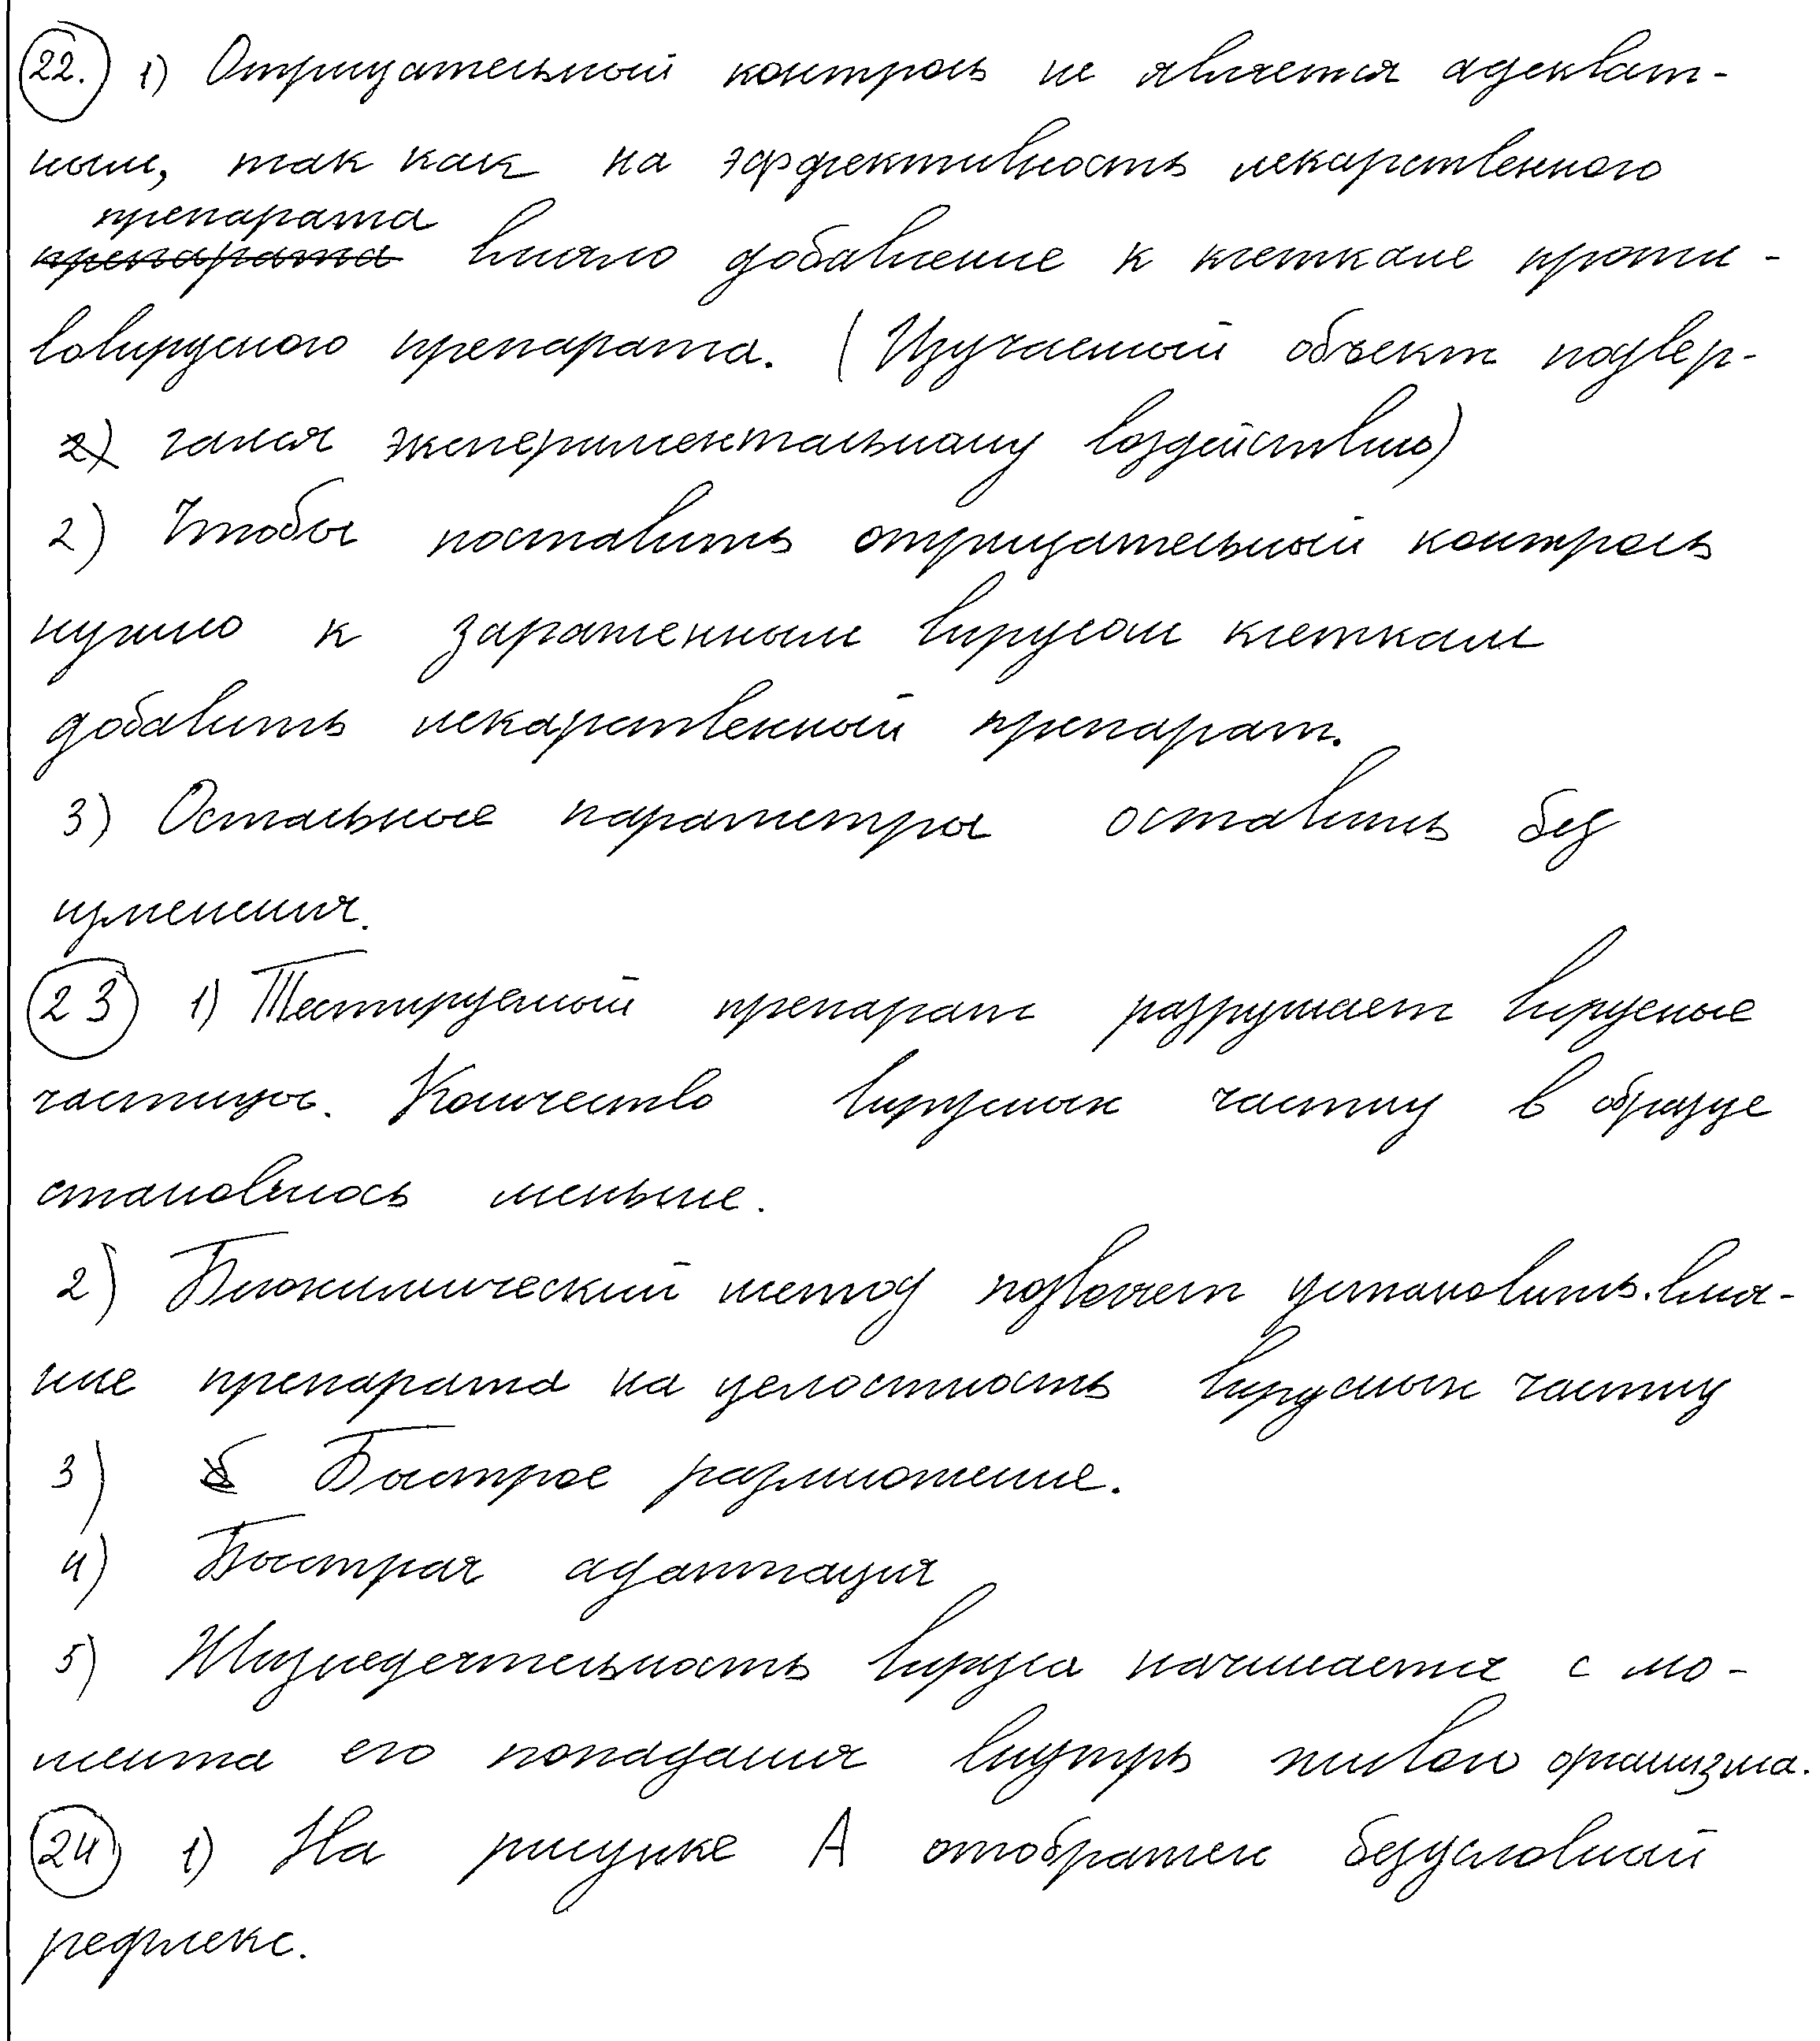 22. 1) Отрицательный контроль не является адекват-
ным, так как на эффективность лекарственного
препарата
препарата влияло добавление к клеткам проти-
вовирусного препарата. (Изучаемый объект подвер-
2) гался экспериментальному воздействию)
2) Чтобы поставить отрицательный контроль
нужно к зараженным вирусом клеткам
добавить лекарственный препарат.
3) Остальные параметры оставить без
изменения.
23 1) Тестируемый препарат разрушает вирусные
частицы. Количество вирусных частиц в образце
становилось меньше.
2) Биохимический метод позволяет установить влия-
ние препарата на целостность вирусных частиц
3) Б Быстрое размножение.
4) Быстрая адаптация
5) Жизнедеятельность вируса начинается с мо-
мента его попадания внутрь живого организма.
24 1) На рисунке А отображен безусловный
рефлекс.